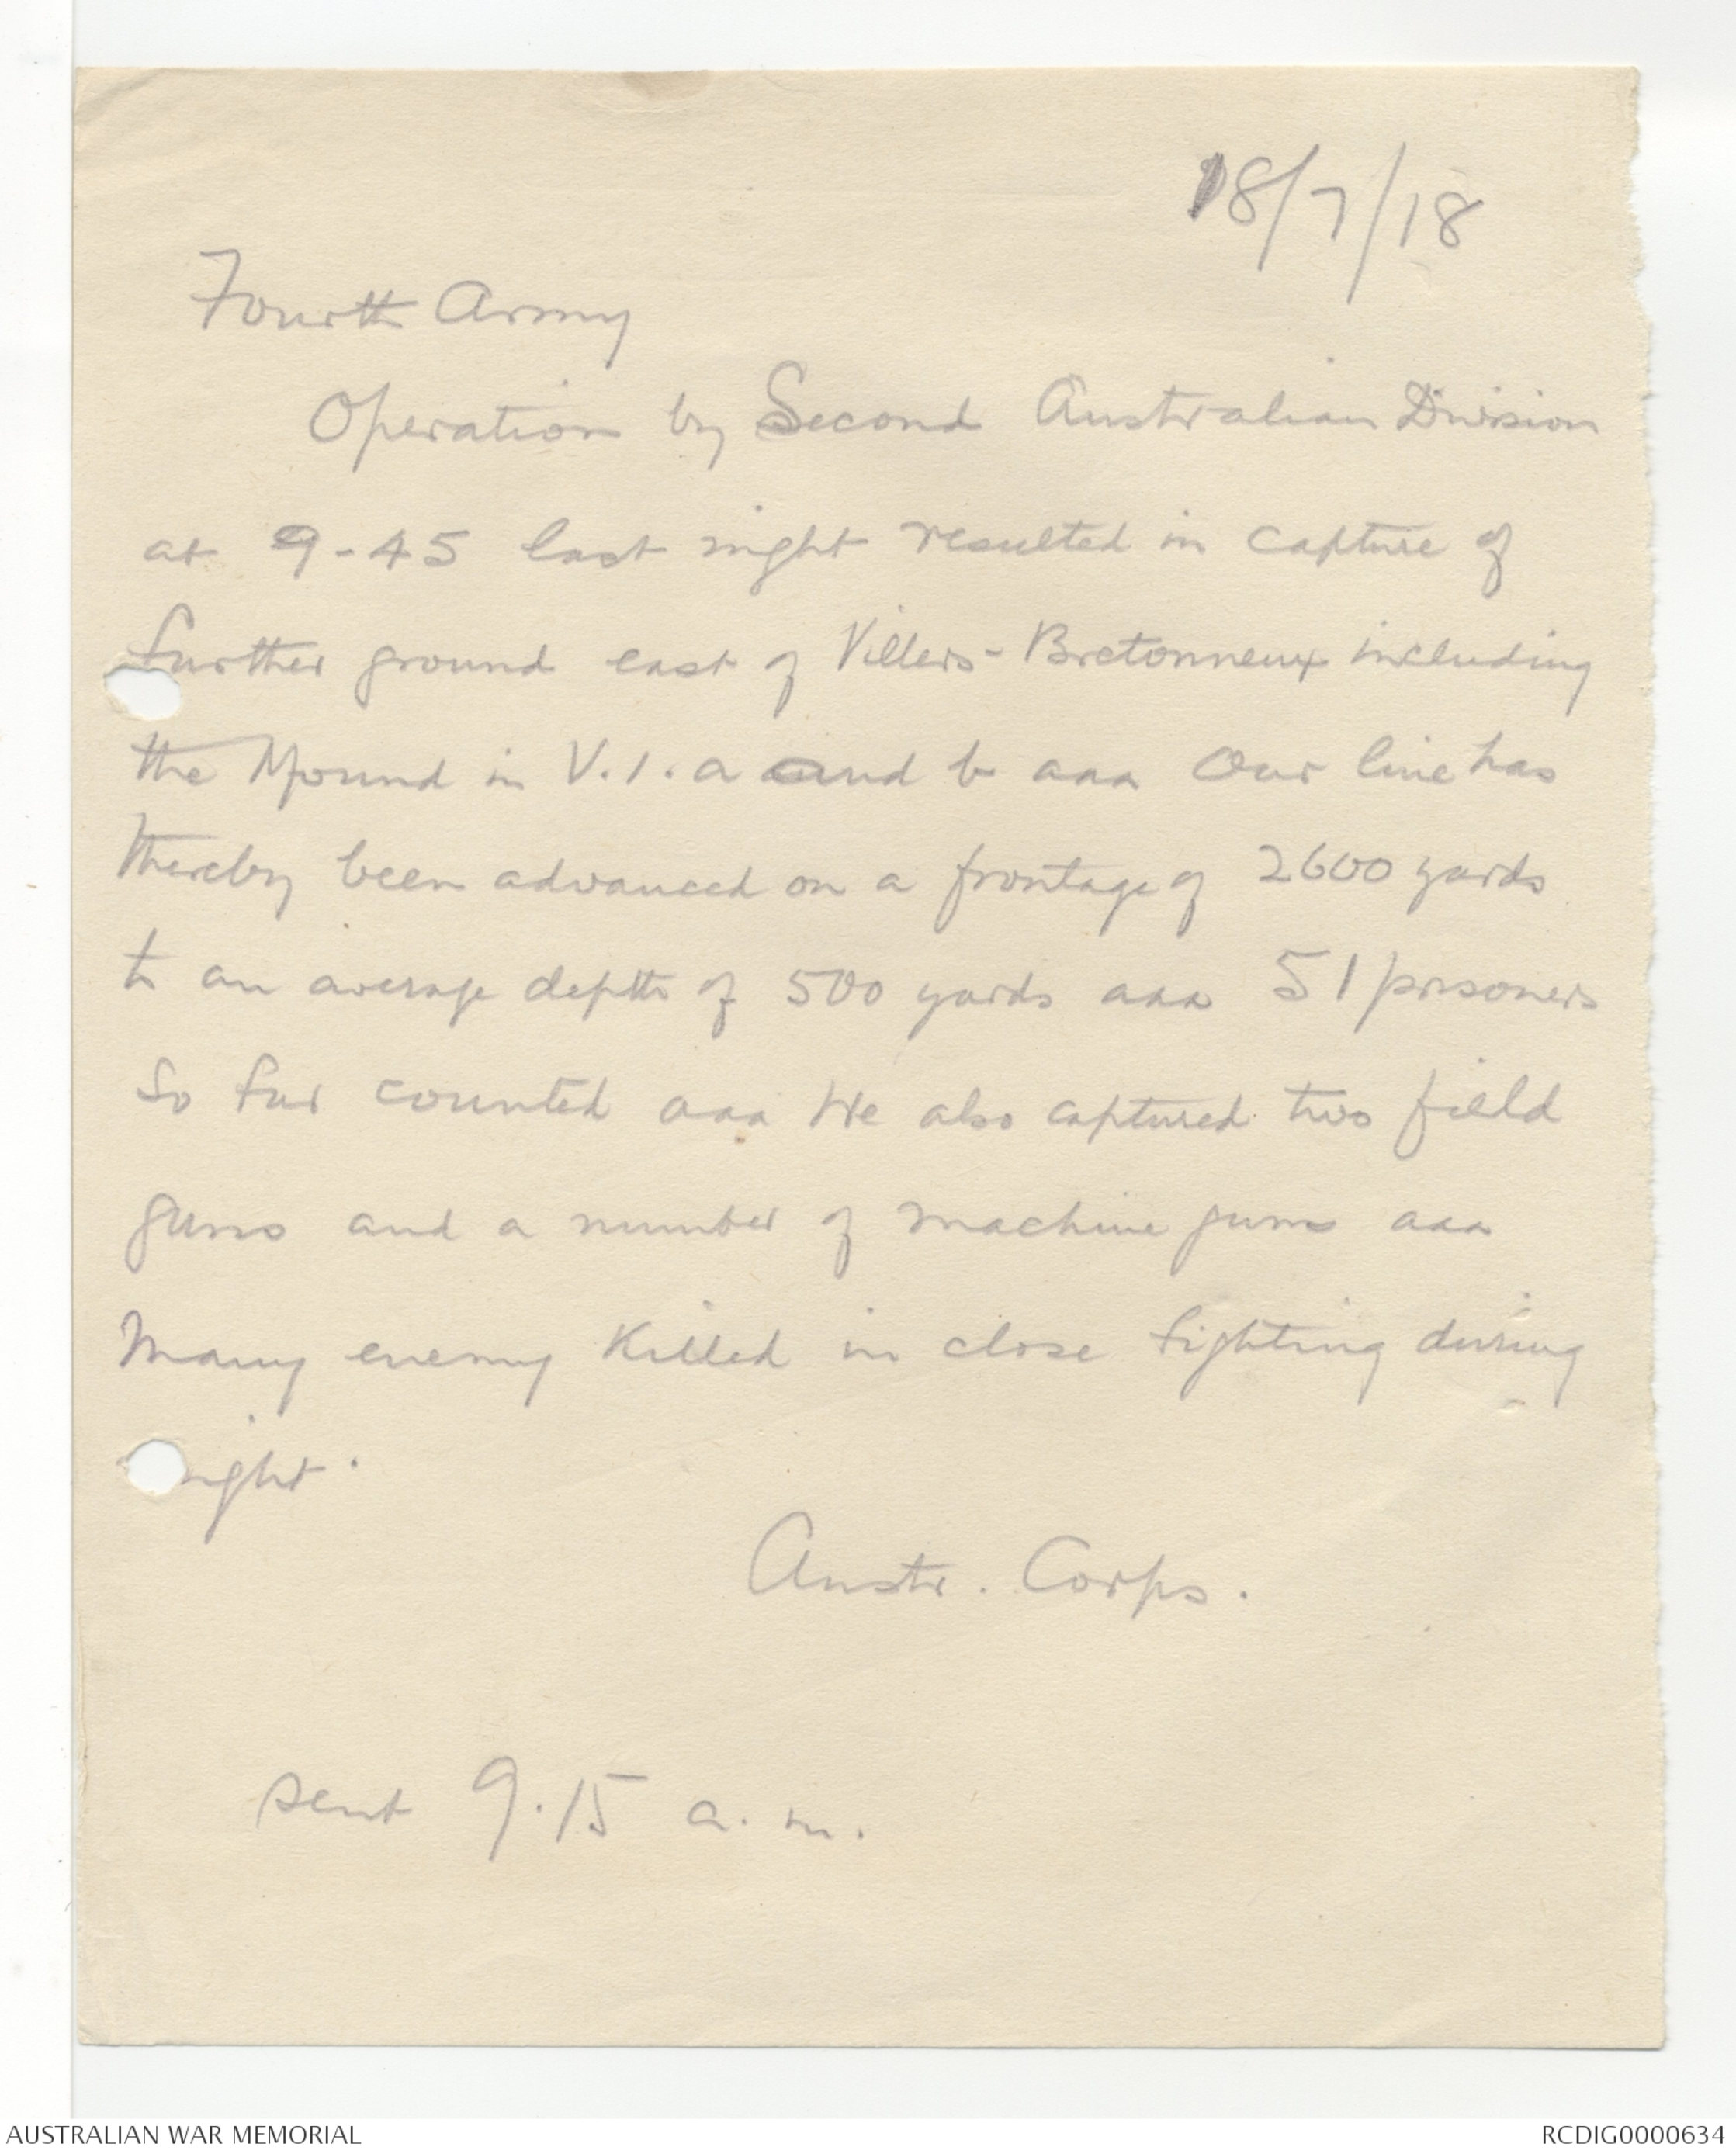 18/7/18
Fourth Army
Operation by Second Australian Division
at 9-45 last night resulted in capture of
further ground east of Villers-Bretonneux including
the Mound in V.1.a and b aaa Our line has
thereby been advanced on a frontage of 2600 yards
to an average depth of 500 yards aaa 51 prisoners
so far counted aaa We also captured two field
guns and a number of machine guns aaa
Many enemy killed in close fighting during
night.
Austr. Corps.
sent 9.15 a.m.
AUSTRALIAN WAR MEMORIAL
RCDIG0000634